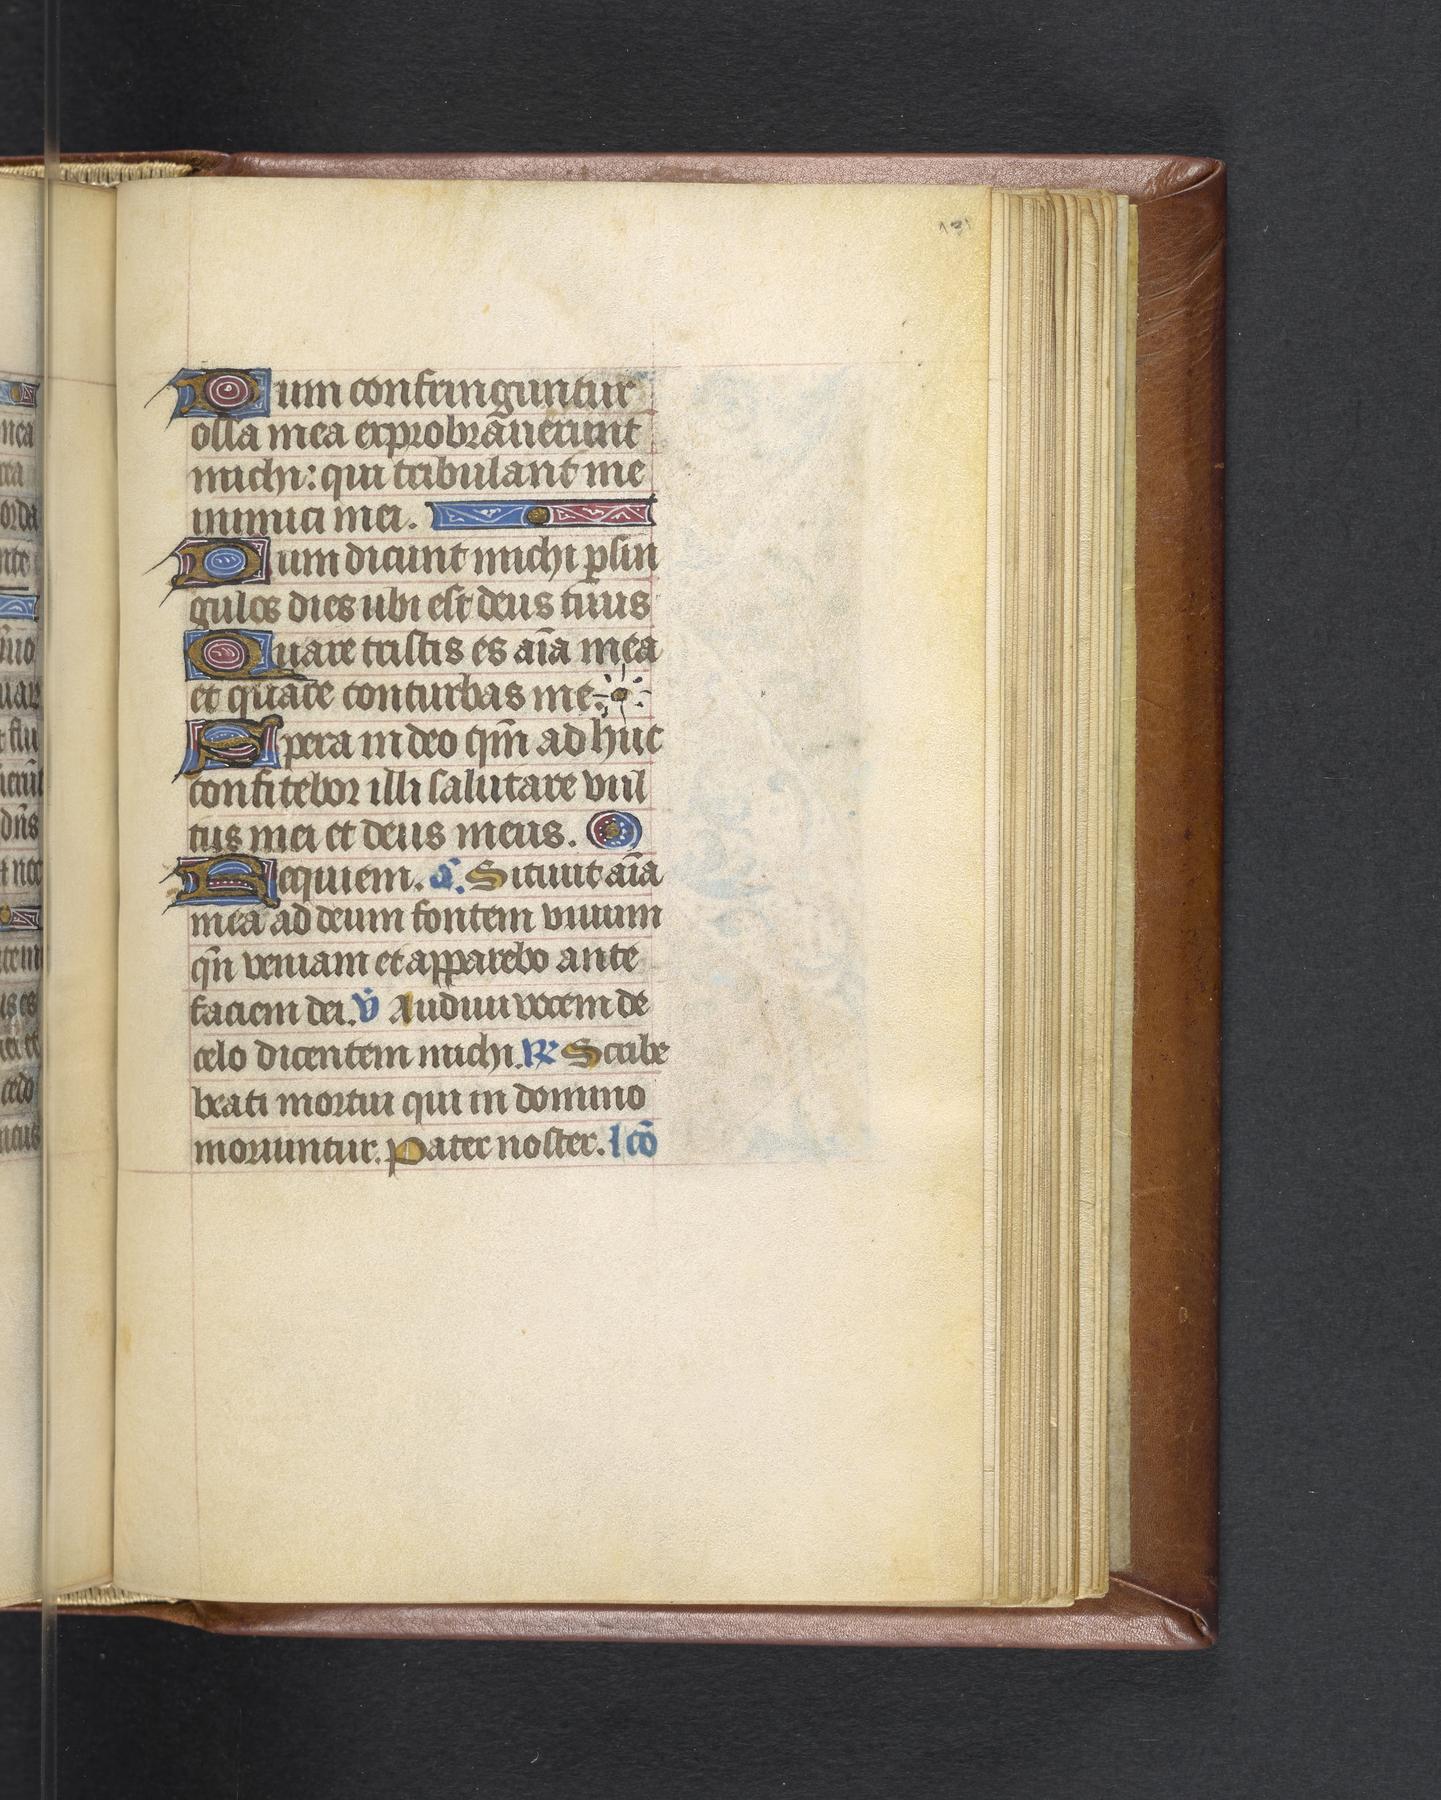 131
Dum confringuntur
ossa mea exprobrauerunt
michi: qui tribulant me
inimici mei.
Dum dicunt michi p sin
gulos dies ubi est deus tuus
Quare tristis es aīa mea
et quare conturbas me.
Spera in deo qm̄ ad huc
confitebor illi salutare vul
tus mei et deus meus.
Requiem. ā. Sitiuit aīa
mea ad deum fontem viuum
qn̄ veniam et apparebo ante
faciem dei. v̄ Audiui vocem de
celo dicentem michi. R Scribe
beati mortui qui in domino
moriuntur. Pater noster. l cō